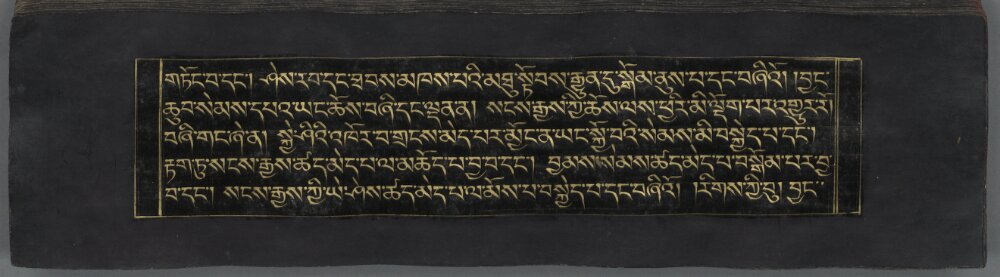 གཏོང་བ་དང་། ཤེས་རབ་དང་ཐབས་མཁས་པའི་མཐུ་སྟོབས་རྒྱུན་དུ་སྒོམ་ནུས་པ་དང་བཞིའོ། །བྱང་
ཆུབ་སེམས་དཔའ་ཡང་ཆོས་བཞི་དང་ལྡན་ན། སངས་རྒྱས་ཀྱི་ཆོས་ལས་ཕྱིར་མི་ལྡོག་པར་འགྱུར་རོ།
བཞི་གང་ཞེ་ན། སྐྱེ་ཤིའི་འཁོར་བ་གྲངས་མེད་པར་མྱོང་ན་ཡང་སྐྱོ་བའི་སེམས་མི་བསྐྱེད་པ་དང་།
རྟག་ཏུ་སངས་རྒྱས་ཚད་མེད་པ་ལ་མཆོད་པ་བྱ་བ་དང་། བྱམས་སེམས་ཚད་མེད་པ་བསྒོམ་པར་བྱ་
བ་དང་། སངས་རྒྱས་ཀྱི་ཡེ་ཤེས་ཚད་མེད་པ་ལ་མོས་པ་བསྐྱེད་པ་དང་བཞིའོ། །རིགས་ཀྱི་བུ། བྱང་